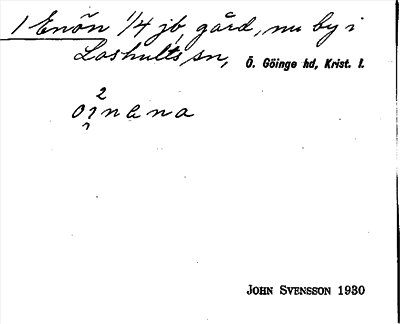 1 Enön 1/4 jb, gård, nu by i
Loshults sn, Ö. Göinge hd, Krist. l.
2
oinana
JOHN SVENSSON 1930